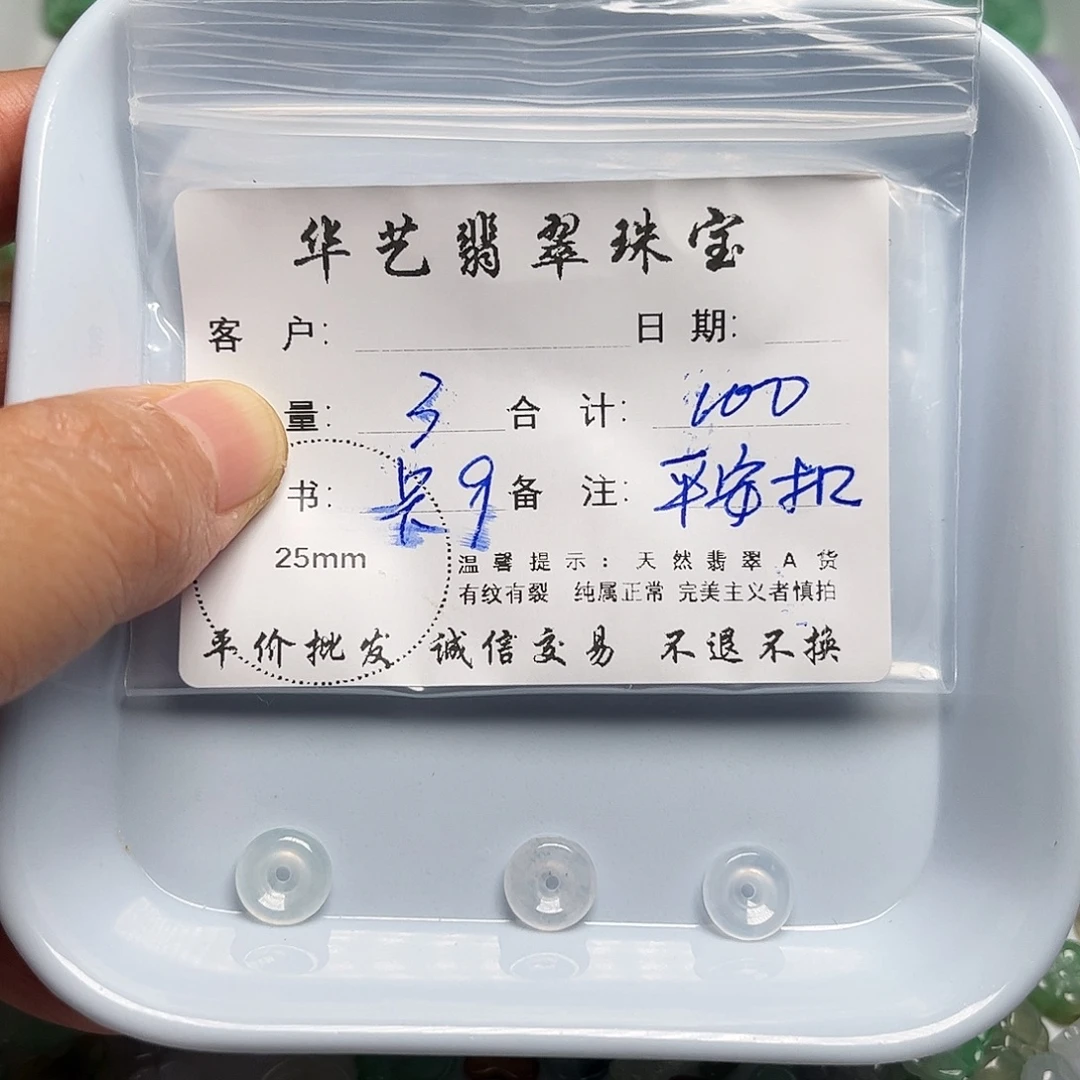 华艺翡翠珠宝
客 户: 日 期:
量: 3 合 计: 100
书: 长9 备 注: 平安扣
25mm
温馨提示: 天然翡翠A货
有纹有裂 纯属正常 完美主义者慎拍
平价批发 诚信交易 不退不换